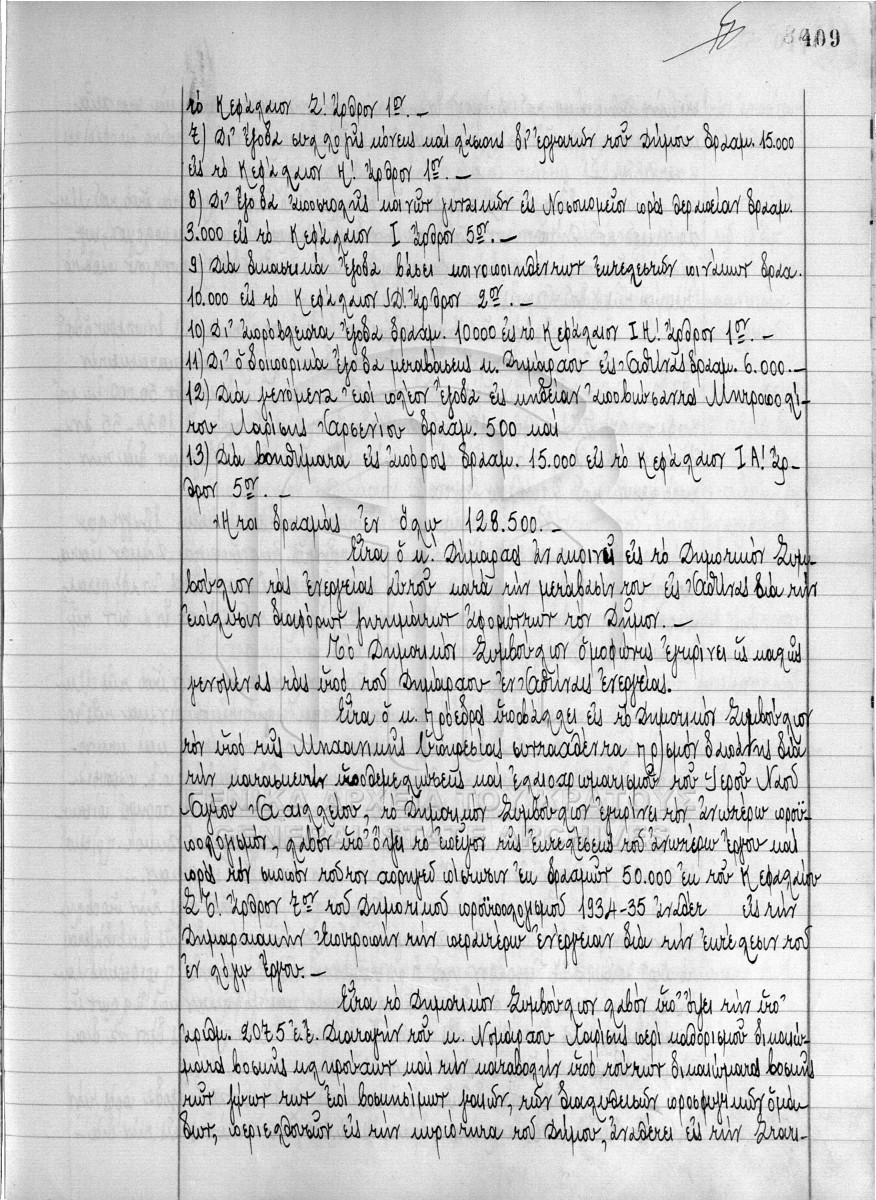 409
τὸ Κεφάλαιον Ζ! Ἄρθρον 1ον.—
7) Δι' ἔξοδα συλλογῆς κόνεως καὶ λάσπης δι' ἐργατῶν τοῦ Δήμου δραχμ. 15.000
εἰς τὸ Κεφάλαιον Η! Ἄρθρον 1ον.—
8) Δι' ἔξοδα ἀποστολῆς κοινῶν γυναικῶν εἰς Νοσοκομεῖον πρὸς θεραπείαν δραχμ.
3.000 εἰς τὸ Κεφάλαιον Ι Ἄρθρον 5ον.—
9) Διὰ δικαστικὰ ἔξοδα βάσει κοινοποιηθέντων ἐκτελεστῶν πινάκων δραχ.
10.000 εἰς τὸ Κεφάλαιον ΙΔ! Ἄρθρον 2ον.—
10) Δι' ἀπρόβλεπτα ἔξοδα δραχμ. 10000 εἰς τὸ Κεφάλαιον ΙΗ! Ἄρθρον 1ον.—
11) Δι' ὁδοιπορικὰ ἔξοδα μεταβάσεως κ. Δημάρχου εἰς Ἀθήνας δραχμ. 6.000.—
12) Διὰ γενόμενα ἐπὶ πλέον ἔξοδα εἰς κηδείαν ἀποβιώσαντος Μητροπολί-
του Λαρίσης Ἀρσενίου δραχμ. 500 καὶ
13) Διὰ βοηθήματα εἰς ἀπόρους δραχμ. 15.000 εἰς τὸ Κεφάλαιον ΙΑ! Ἄρ-
θρον 5ον.—
Ἤτοι δραχμὰς ἐν ὅλῳ 128.500.—
Εἶτα ὁ κ. Δήμαρχος ἀνακοινοῖ εἰς τὸ Δημοτικὸν Συμ-
βούλιον τὰς ἐνεργείας αὐτοῦ κατὰ τὴν μετάβασίν του εἰς Ἀθήνας διὰ τὴν
ἐπίλυσιν διαφόρων ζητημάτων ἀφορώντων τὸν Δῆμον.—
Τὸ Δημοτικὸν Συμβούλιον ὁμοφώνως ἐγκρίνει ὡς καλῶς
γενομένας τὰς ὑπὸ τοῦ Δημάρχου ἐν Ἀθήναις ἐνεργείας.
Εἶτα ὁ κ. Πρόεδρος ὑποβάλλει εἰς τὸ Δημοτικὸν Συμβούλιον
τὸν ὑπὸ τῆς Μηχανικῆς Ὑπηρεσίας συνταχθέντα προϋσμὸν δαπάνης διὰ
τὴν κατασκευὴν ὑποθεμελιώσεως καὶ ἐλαιοχρωματισμοῦ τοῦ Ἱεροῦ Ναοῦ
Ἁγίου Ἀχιλλείου, τὸ Δημοτικὸν Συμβούλιον ἐγκρίνει τὸν ἀνωτέρω προϋ-
πολογισμόν, λαβὸν ὑπ' ὄψει τὸ ἐπεῖγον τῆς ἐκτελέσεως τοῦ ἀνωτέρω ἔργου καὶ
πρὸς τὸν σκοπὸν τοῦτον χορηγεῖ πίστωσιν ἐκ δραχμῶν 50.000 ἐκ τοῦ Κεφαλαίου
Ἄρθρον 7ον τοῦ Δημοτικοῦ προϋπολογισμοῦ 1934-35 ἀναθέτ εἰς τὴν
Δημαρχιακὴν Ἐπιτροπὴν τὴν περαιτέρω ἐνέργειαν διὰ τὴν ἐκτέλεσιν τοῦ
ἐν λόγῳ ἔργου.—
Εἶτα τὸ Δημοτικὸν Συμβούλιον λαβὸν ὑπ' ὄψει τὴν ὑπ'
ἀριθμ. 2075 ἐ.ἔ. Διαταγὴν τοῦ κ. Νομάρχου Λαρίσης περὶ καθορισμοῦ δικαιώ-
ματος βοσκῆς κληρούχων καὶ τὴν καταβολὴν ὑπὸ τούτων δικαιώματος βοσκῆς
τῶν ζώων των ἐπὶ βοσκησίμων γαιῶν, τῶν διαλυθεισῶν προσφυγικῶν ὁμά-
δων, περιελθουσῶν εἰς τὴν κυριότητα τοῦ Δήμου, ἀναθέτει εἰς τὴν
ΓΕΝΙΚΑ ΑΡΧΕΙΑ ΤΟΥ ΚΡΑΤΟΥΣ
GENERAL STATE ARCHIVES